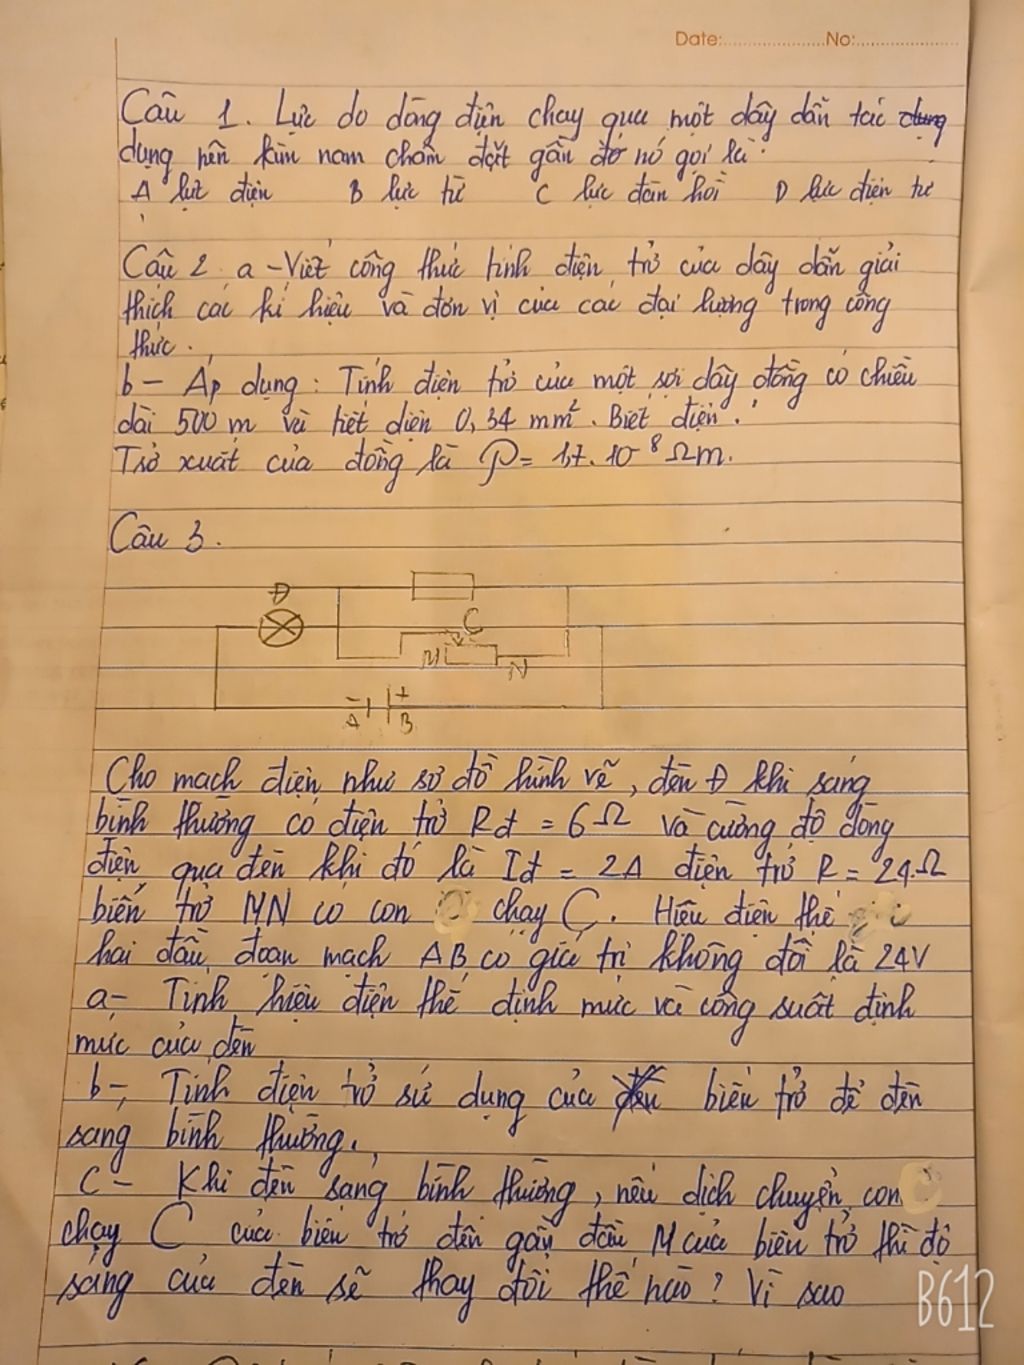 Date:..................No:..................
Câu 1. Lực do dòng điện chạy qua một dây dẫn tác dụng
dụng nên kim nam châm đặt gần đó nó gọi là.
A lực điện B lực từ C lực đàn hồi D lực điện từ
Câu 2 a - Viết công thức tính điện trở của dây dẫn giải
thích các kí hiệu và đơn vị của các đại lượng trong công
thức.
b - Áp dụng: Tính điện trở của một sợi dây đồng có chiều
dài 500 m và tiết diện 0,34 mm². Biết điện.
Trở xuất của đồng là ρ = 1,7. 10⁻⁸ Ωm.
Câu 3.
Đ
C
M N
- +
A B
Cho mạch điện như sơ đồ hình vẽ, đèn Đ khi sáng
bình thường có điện trở Rđ = 6Ω và cường độ dòng
điện qua đèn khi đó là Iđ = 2A điện trở R = 24.Ω
biến trở MN có con chạy C. Hiệu điện thế
hai đầu đoạn mạch AB có giá trị không đổi là 24V
a- Tính hiệu điện thế định mức và công suất định
mức của đèn
b-, Tính điện trở sử dụng của biến trở để đèn
sáng bình thường.
C - Khi đèn sáng bình thường, nếu dịch chuyển con
chạy C của biến trở đến gần đầu M của biến trở thì độ
sáng của đèn sẽ thay đổi thế nào? Vì sao
B612